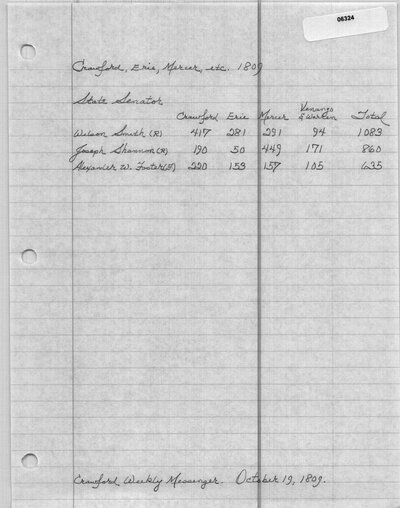 06324
Crawford, Erie, Mercer, etc. 1809
State Senator
Crawford Erie Mercer Venango & Warren Total
Wilson Smith (R) 417 281 291 94 1083
Joseph Shannon (R) 190 50 449 171 860
Alexander W. Foster (F) 220 153 157 105 635
Crawford Weekly Messenger. October 19, 1809.